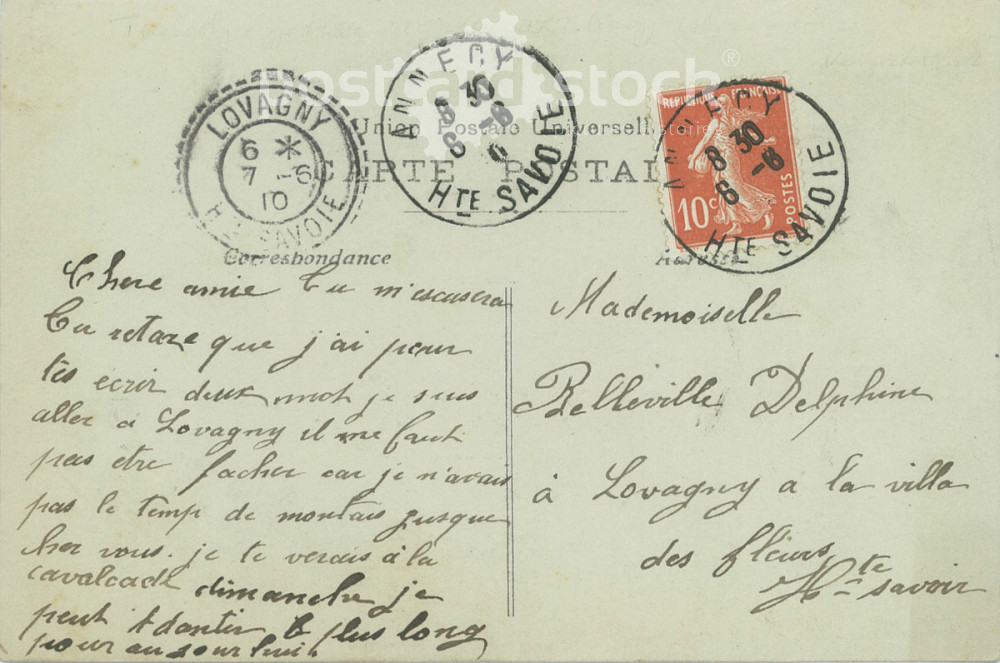 postcardstock®
Union Postale Universelle
CARTE POSTALE
LOVAGNY
6 *
7 -6
10
Hte SAVOIE
ANNECY
8 30
6 -6
Hte SAVOIE
REPUBLIQUE FRANÇAISE
10c
POSTES
ANNECY
8 30
6 -6
Hte SAVOIE
Correspondance
Adresse
Chere amie tu m'escusera
tu retare que j'ai pour
tes ecrir deux mot je suis
aller a Lovagny il me faut
pas etre facher car je n'avais
pas le temp de montais jusque
cher vous. je te verais à la
cavalcade dimanche je
peut t le plus long
pour au jour hui
Mademoiselle
Belleville Delphine
à Lovagny a la villa
des fleurs
Hte savoir